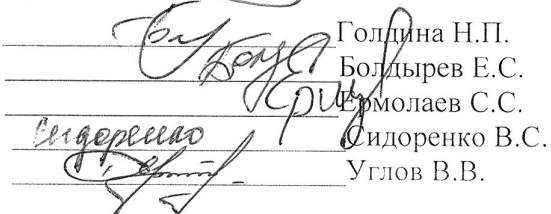 Голдина Н.П.
Болдырев Е.С.
Ермолаев С.С.
Сидоренко Сидоренко В.С.
Углов В.В.